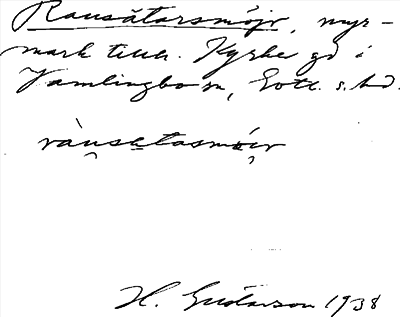 Rausätarsmöjr, myr-
mark till Kyrke gd i
Vamlingbo sn, Gotl. s. hd.
ràu̯sätasmöi̯r
H. Gustavson 1938